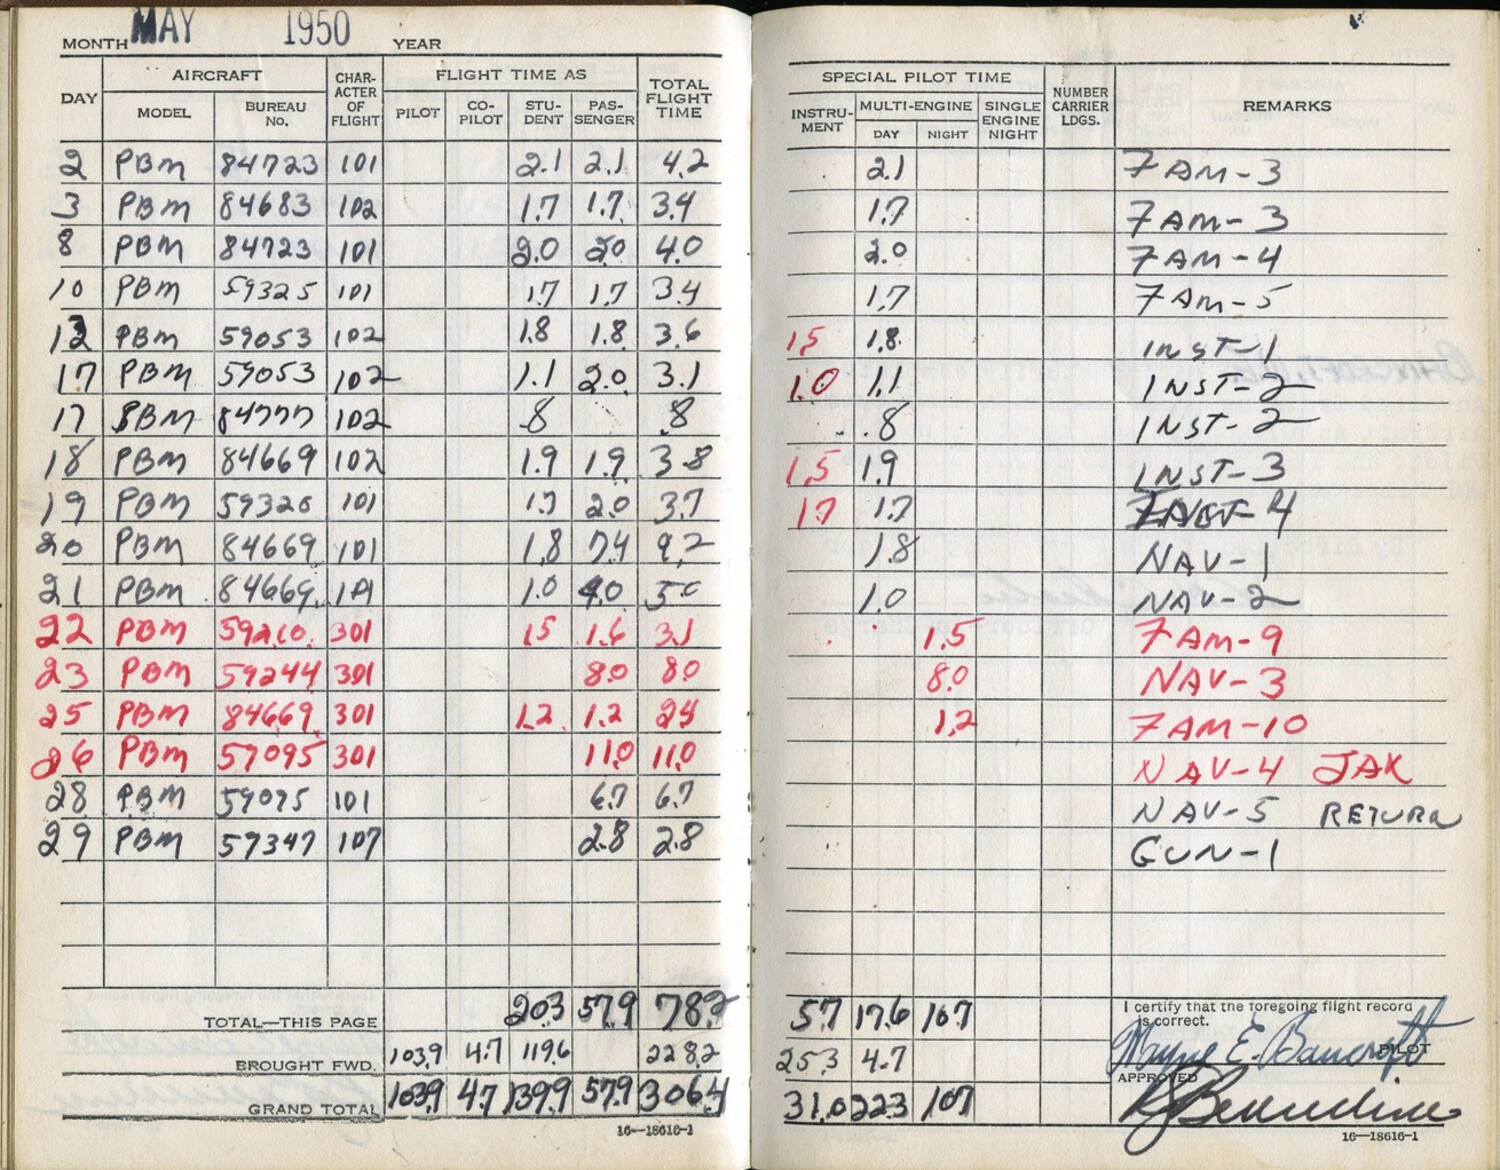 MONTH MAY 1950 YEAR
DAY AIRCRAFT CHAR-ACTER OF FLIGHT FLIGHT TIME AS TOTAL FLIGHT TIME
MODEL BUREAU NO. PILOT CO-PILOT STU-DENT PAS-SENGER
2 PBM 84723 101 2.1 2.1 4.2
3 PBM 84683 102 1.7 1.7 3.4
8 PBM 84723 101 2.0 2.0 4.0
10 PBM 59325 101 1.7 1.7 3.4
13 PBM 59053 102 1.8 1.8 3.6
17 PBM 59053 102 1.1 2.0 3.1
17 PBM 84777 102 .8 .8
18 PBM 84669 102 1.9 1.9 3.8
19 PBM 59326 101 1.7 2.0 3.7
20 PBM 84669 101 1.8 7.4 9.2
21 PBM 84669 1A1 1.0 4.0 5.0
22 PBM 59210 301 1.5 1.6 3.1
23 PBM 59244 301 8.0 8.0
25 PBM 84669 301 1.2 1.2 2.4
26 PBM 57095 301 11.0 11.0
28 PBM 59095 101 6.7 6.7
29 PBM 57347 107 2.8 2.8
TOTAL—THIS PAGE 20.3 57.9 78.2
BROUGHT FWD. 103.9 4.7 119.6 228.2
GRAND TOTAL 103.9 4.7 139.9 57.9 306.4
16—18616-1
SPECIAL PILOT TIME NUMBER CARRIER LDGS. REMARKS
INSTRU-MENT MULTI-ENGINE SINGLE ENGINE NIGHT
DAY NIGHT
2.1 FAM-3
1.7 FAM-3
2.0 FAM-4
1.7 FAM-5
1.5 1.8 INST-1
1.0 1.1 INST-2
.8 INST-2
1.5 1.9 INST-3
1.7 1.7 4
1.8 NAV-1
1.0 NAV-2
1.5 FAM-9
8.0 NAV-3
1.2 FAM-10
NAV-4 JAX
NAV-5 RETURN
GUN-1
5.7 17.6 10.7 I certify that the foregoing flight record is correct.
25.3 4.7 Wayne E. Bancroft PILOT
APPROVED
31.0 22.3 10.7
16—18616-1